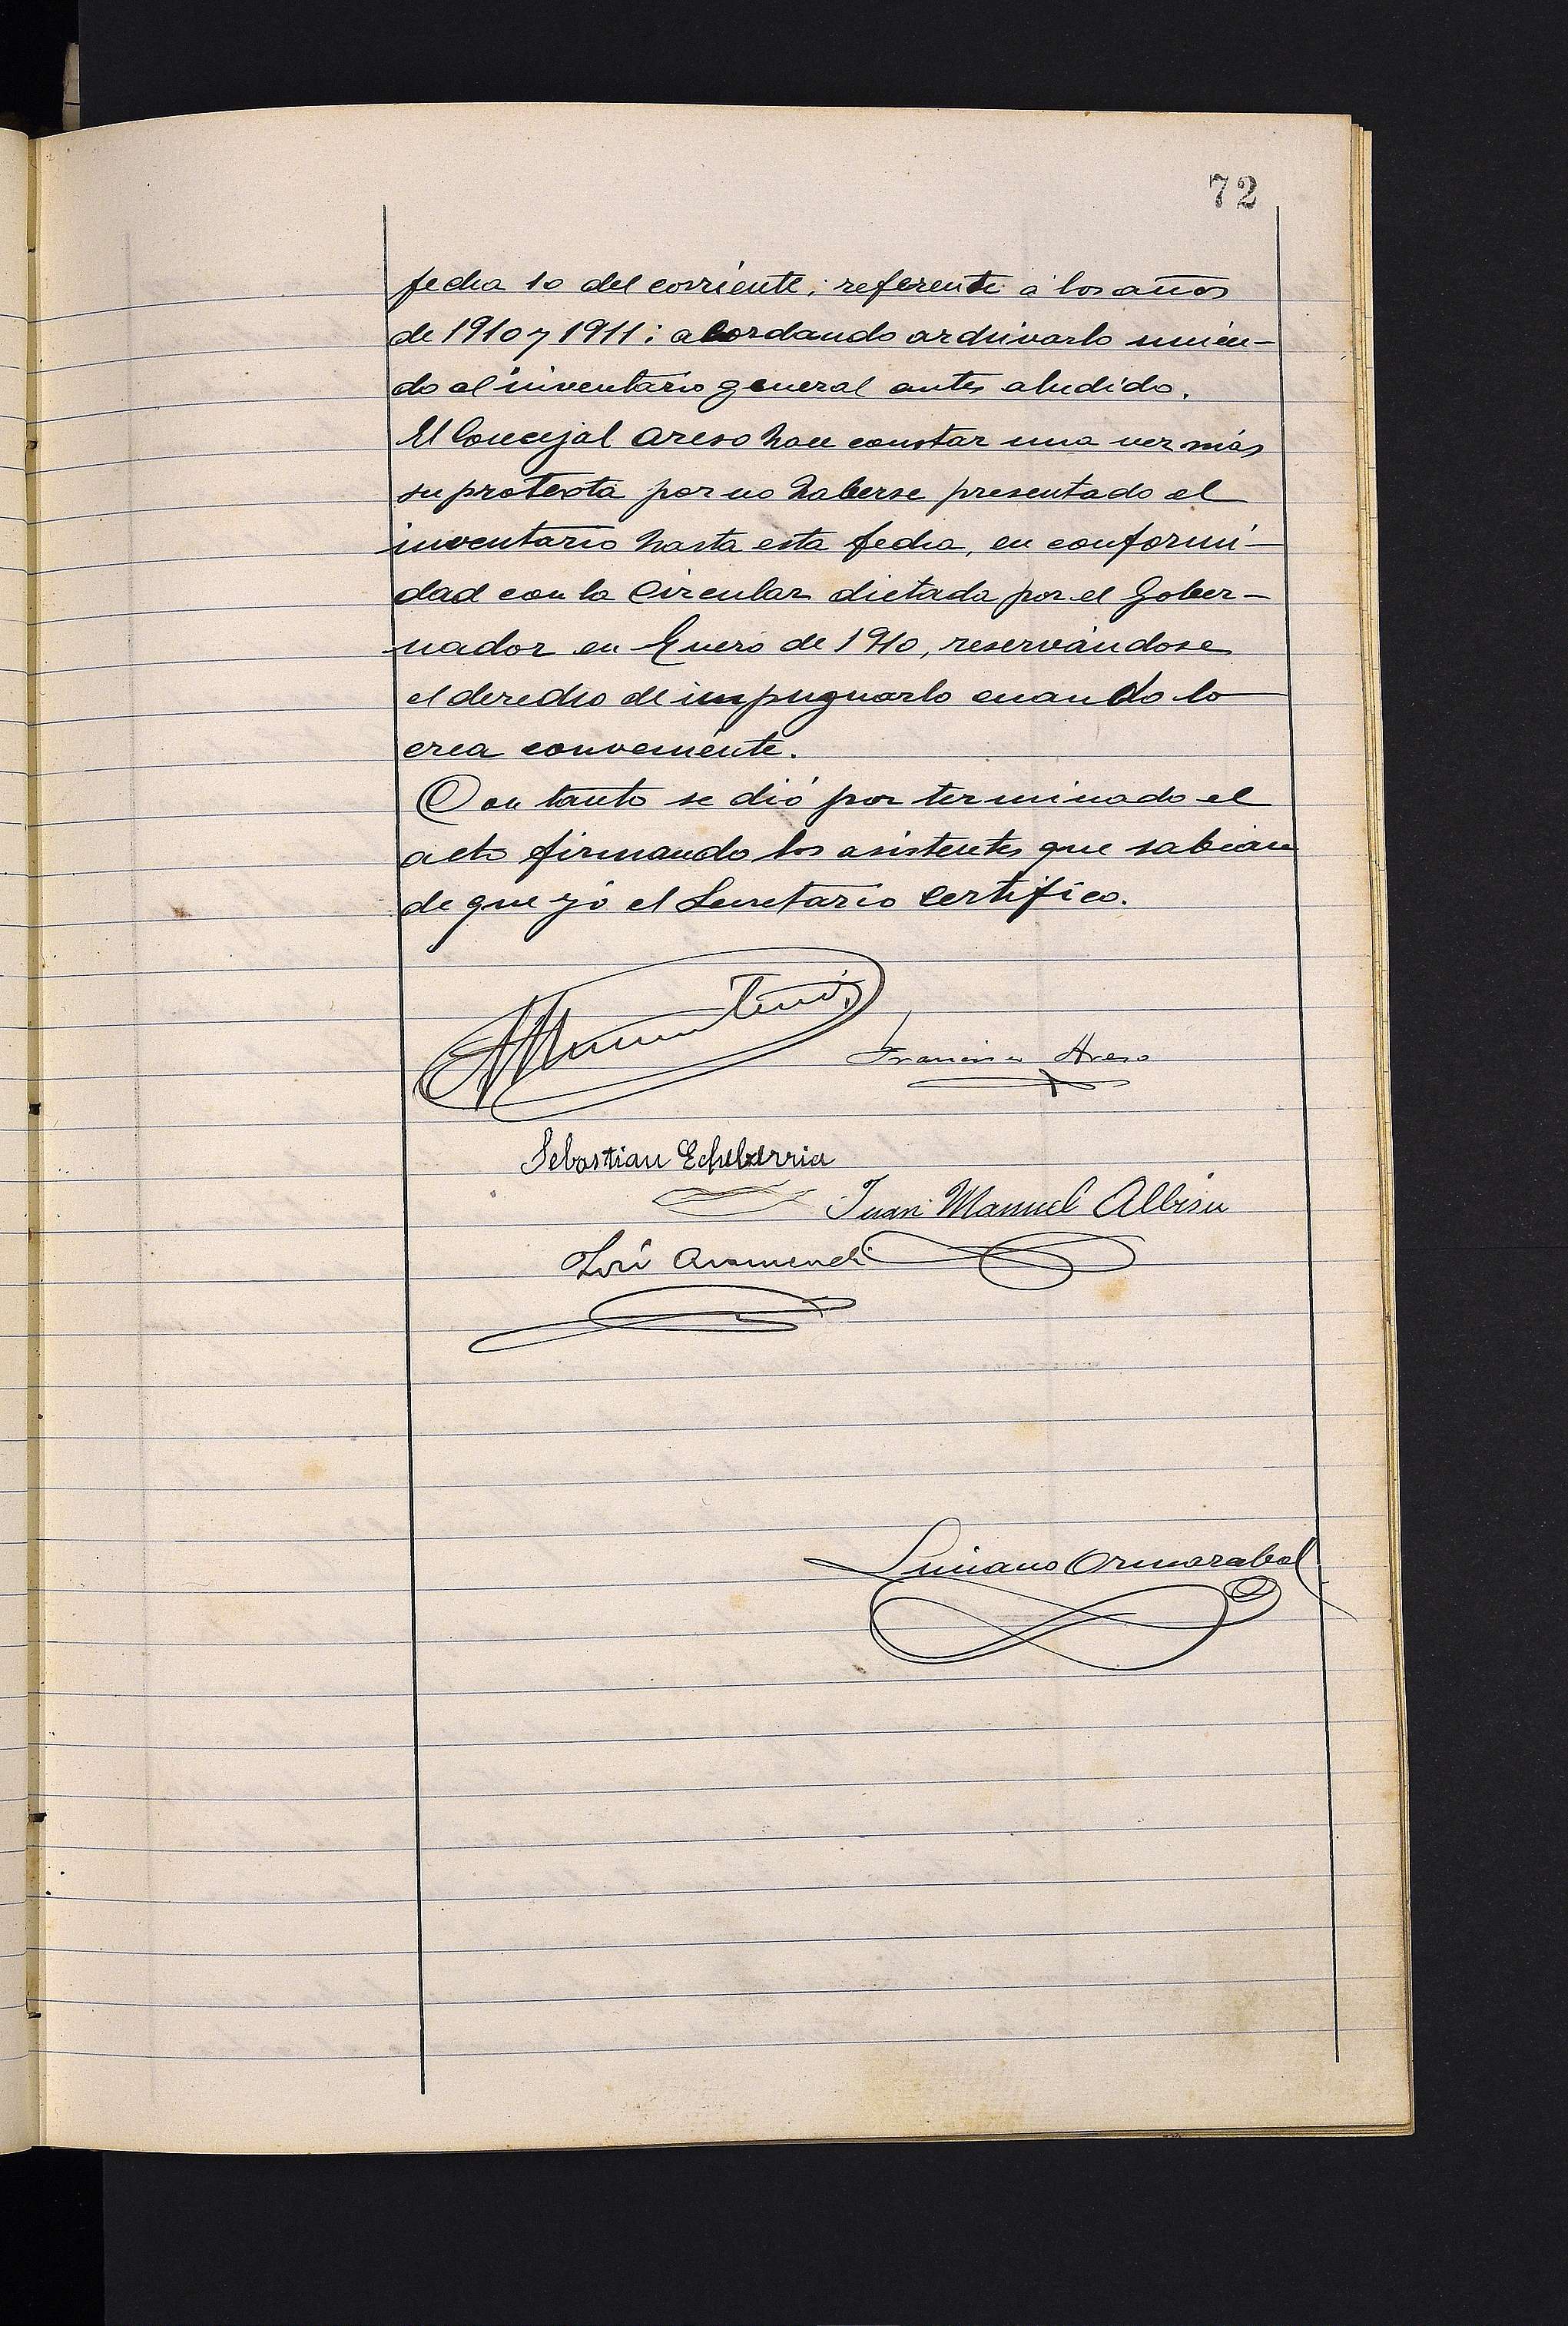 72
fecha 10 del corriente; referente á los años
de 1910 y 1911; acordando archivarlo unien-
do al inventario general antes aludido.
El Concejal Areso hace constar una vez más
su protesta por no haberse presentado el
inventario hasta esta fecha, en conformi-
dad con la Circular dictada por el Gober-
nador en Enero de 1910, reservándose
el derecho de impugnarlo cuando lo
crea conveniente.
Con tanto se dió por terminado el
acto firmando los asistentes que sabian
de que yó el Secretario certifico.
Francisco Areso
Sebastian Echeberria
Juan Manuel Albisu
José Aramendi
Luciano Ormazabal